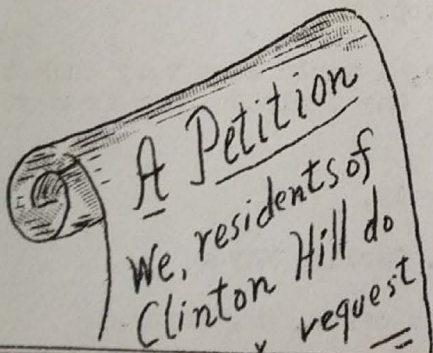 A Petition
We, residents of
Clinton Hill do
request